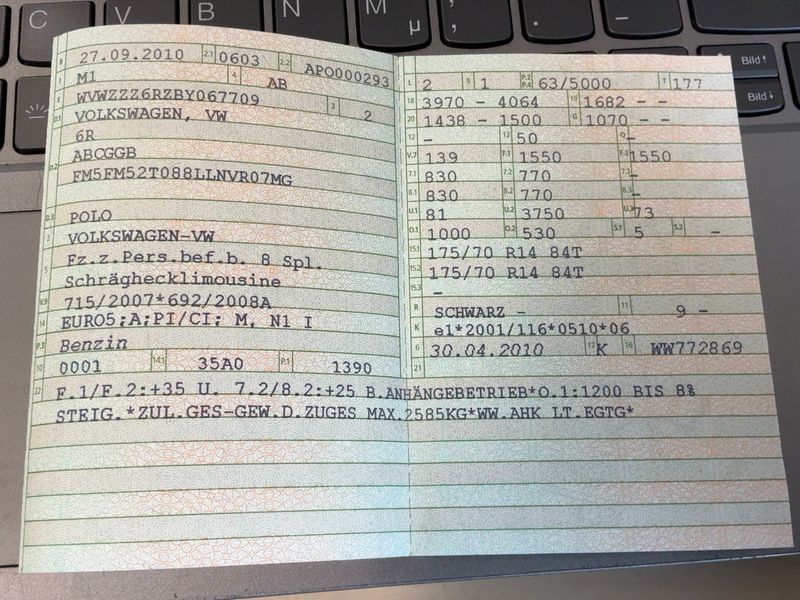 C V B N M µ ; : _
B 27.09.2010 2.1 0603 2.2 APO000293
J M1 4 AB
E WVWZZZ6RZBY067709 3 2
D.1 VOLKSWAGEN, VW
6R
D.2 ABCGGB
FM5FM52T088LLNVR07MG
D.3 POLO
2 VOLKSWAGEN-VW
5 Fz.z.Pers.bef.b. 8 Spl.
Schräghecklimousine
V.9 715/2007*692/2008A
14 EURO5;A;PI/CI; M, N1 I
P.3 Benzin
10 0001 14.1 35A0 P.1 1390
L 2 9 1 P.2 P.4 63/5000 T 177
18 3970 - 4064 19 1682 - -
20 1438 - 1500 G 1070 - -
12 - 13 50 Q -
V.7 139 F.1 1550 F.2 1550
7.1 830 7.2 770 7.3 -
8.1 830 8.2 770 8.3 -
U.1 81 U.2 3750 U.3 73
O.1 1000 O.2 530 S.1 5 S.2 -
15.1 175/70 R14 84T
15.2 175/70 R14 84T
15.3 -
R SCHWARZ - 11 9 -
K e1*2001/116*0510*06
6 30.04.2010 17 K 16 WW772869
21
22 F.1/F.2:+35 U. 7.2/8.2:+25 B.ANHÄNGEBETRIEB*O.1:1200 BIS 8%
STEIG.*ZUL.GES-GEW.D.ZUGES MAX.2585KG*WW.AHK LT.EGTG*
Bild↑
Bild↓